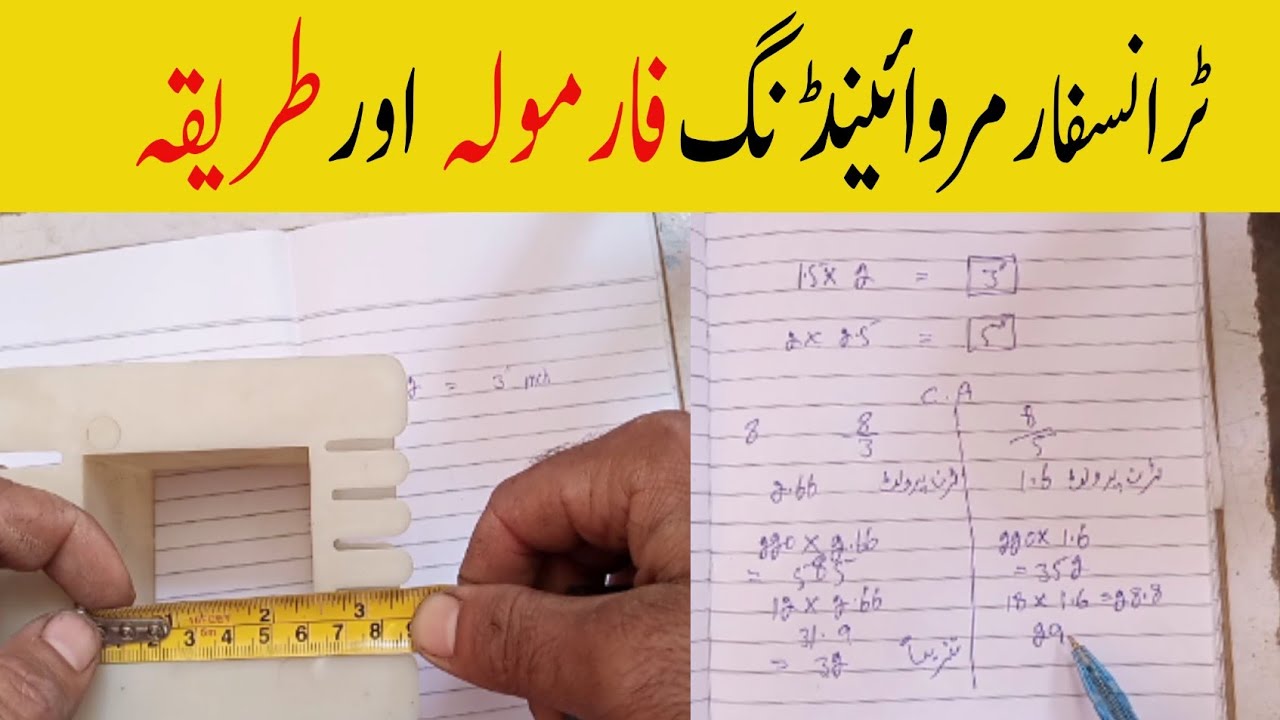 ٹرانسفارمر وائینڈنگ فارمولہ اور طریقہ
2 = 3" inch
1 2 3
1 2 3 4 5 6 7 8 9
1.5 x 2 = 3"
2 x 2.5 = 5"
C.A
8 8/3 8/5
2.66 ٹرن پر ولٹ 1.6 ٹرن پر ولٹ
220 x 2.66 220 x 1.6
= 585 = 352
12 x 2.66 18 x 1.6 = 28.8
31.9 29
= 32 تقریباً